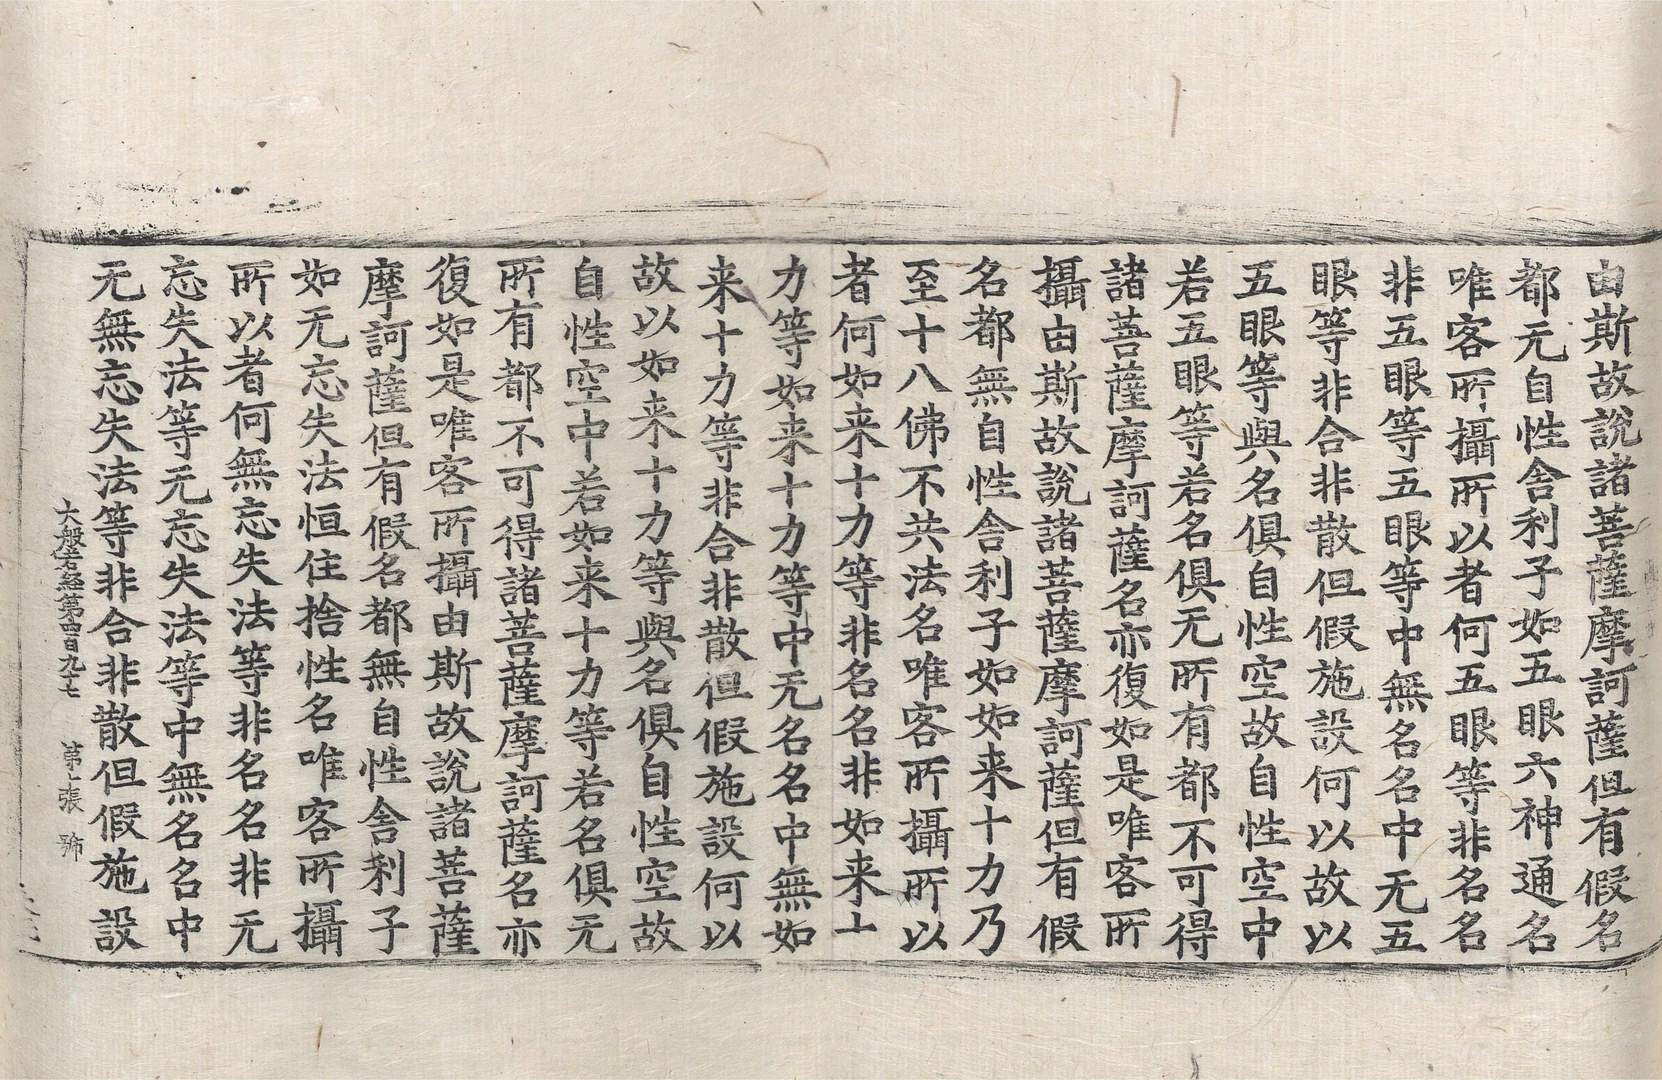 由斯故說諸菩薩摩訶薩但有假名
都无自性舎利子如五眼六神通名
唯客所攝所以者何五眼等非名名
非五眼等五眼等中無名名中无五
眼等非合非散但假施設何以故以
五眼等與名俱自性空故自性空中
若五眼等若名俱无所有都不可得
諸菩薩摩訶薩名亦復如是唯客所
攝由斯故說諸菩薩摩訶薩但有假
名都無自性舎利子如如来十力乃
至十八佛不共法名唯客所攝所以
者何如来十力等非名名非如来十
力等如来十力等中无名名中無如
来十力等非合非散但假施設何以
故以如来十力等與名俱自性空故
自性空中若如来十力等若名俱无
所有都不可得諸菩薩摩訶薩名亦
復如是唯客所攝由斯故說諸菩薩
摩訶薩但有假名都無自性舎利子
如无忘失法恒住捨性名唯客所攝
所以者何無忘失法等非名名非无
忘失法等无忘失法等中無名名中
无無忘失法等非合非散但假施設
大般若経第四百九十七 第七張 號